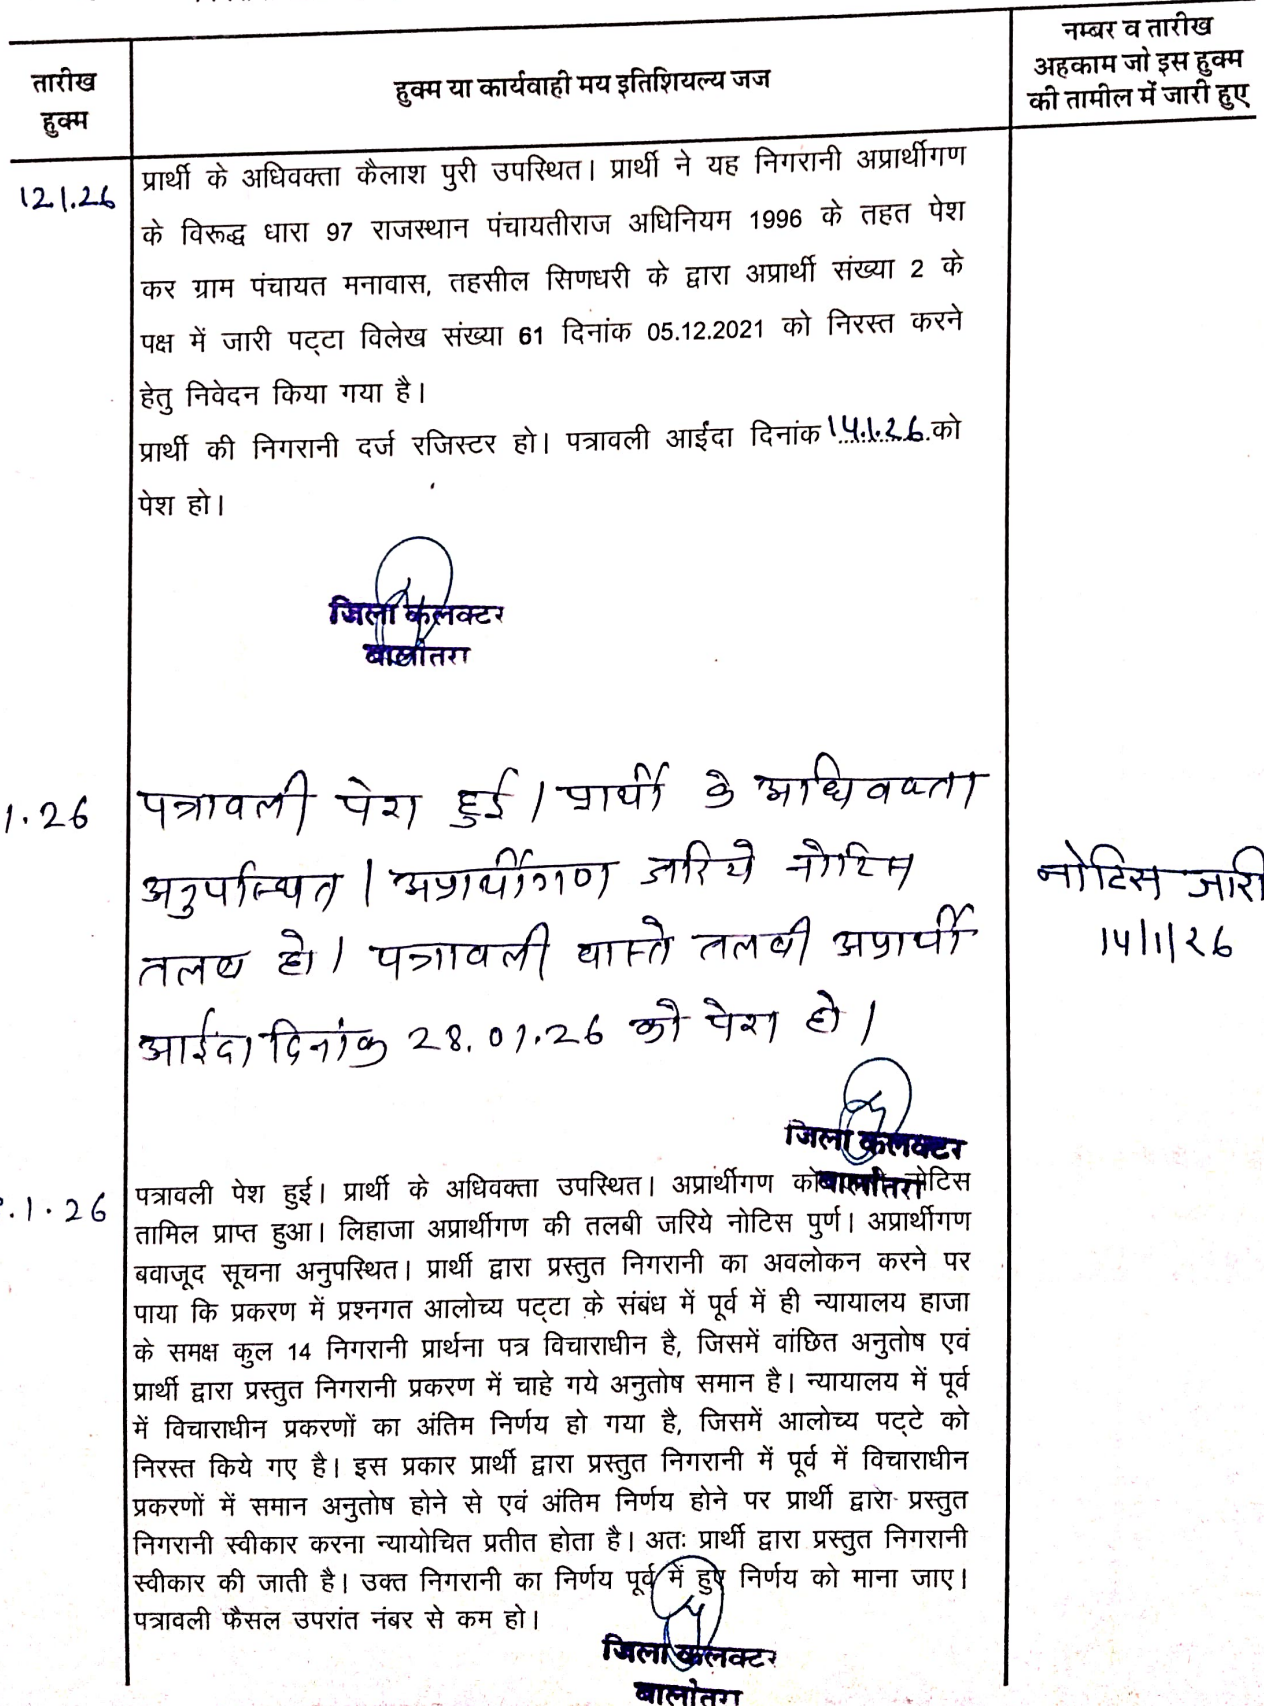 तारीख
हुक्म
हुक्म या कार्यवाही मय इतिशियल्य जज
नम्बर व तारीख
अहकाम जो इस हुक्म
की तामील में जारी हुए
12.1.26
प्रार्थी के अधिवक्ता कैलाश पुरी उपस्थित। प्रार्थी ने यह निगरानी अप्रार्थीगण
के विरूद्ध धारा 97 राजस्थान पंचायतीराज अधिनियम 1996 के तहत पेश
कर ग्राम पंचायत मनावास, तहसील सिणधरी के द्वारा अप्रार्थी संख्या 2 के
पक्ष में जारी पट्टा विलेख संख्या 61 दिनांक 05.12.2021 को निरस्त करने
हेतु निवेदन किया गया है।
प्रार्थी की निगरानी दर्ज रजिस्टर हो। पत्रावली आईंदा दिनांक 14.1.26 को
पेश हो।
जिला कलक्टर
बालोतरा
1.26
पत्रावली पेश हुई। प्रार्थी के अधिवक्ता
अनुपस्थित। अप्रार्थीगण जरिये नोटिस
तलब हो। पत्रावली वास्ते तलबी अप्रार्थी
आईंदा दिनांक 28.01.26 को पेश हो।
नोटिस जारी
14/1/26
जिला कलक्टर
बालोतरा
.1.26
पत्रावली पेश हुई। प्रार्थी के अधिवक्ता उपस्थित। अप्रार्थीगण को नोटिस
तामिल प्राप्त हुआ। लिहाजा अप्रार्थीगण की तलबी जरिये नोटिस पुर्ण। अप्रार्थीगण
बवाजूद सूचना अनुपस्थित। प्रार्थी द्वारा प्रस्तुत निगरानी का अवलोकन करने पर
पाया कि प्रकरण में प्रश्नगत आलोच्य पट्टा के संबंध में पूर्व में ही न्यायालय हाजा
के समक्ष कुल 14 निगरानी प्रार्थना पत्र विचाराधीन है, जिसमें वांछित अनुतोष एवं
प्रार्थी द्वारा प्रस्तुत निगरानी प्रकरण में चाहे गये अनुतोष समान है। न्यायालय में पूर्व
में विचाराधीन प्रकरणों का अंतिम निर्णय हो गया है, जिसमें आलोच्य पट्टे को
निरस्त किये गए है। इस प्रकार प्रार्थी द्वारा प्रस्तुत निगरानी में पूर्व में विचाराधीन
प्रकरणों में समान अनुतोष होने से एवं अंतिम निर्णय होने पर प्रार्थी द्वारा प्रस्तुत
निगरानी स्वीकार करना न्यायोचित प्रतीत होता है। अतः प्रार्थी द्वारा प्रस्तुत निगरानी
स्वीकार की जाती है। उक्त निगरानी का निर्णय पूर्व में हुए निर्णय को माना जाए।
पत्रावली फैसल उपरांत नंबर से कम हो।
जिला कलक्टर
बालोतरा